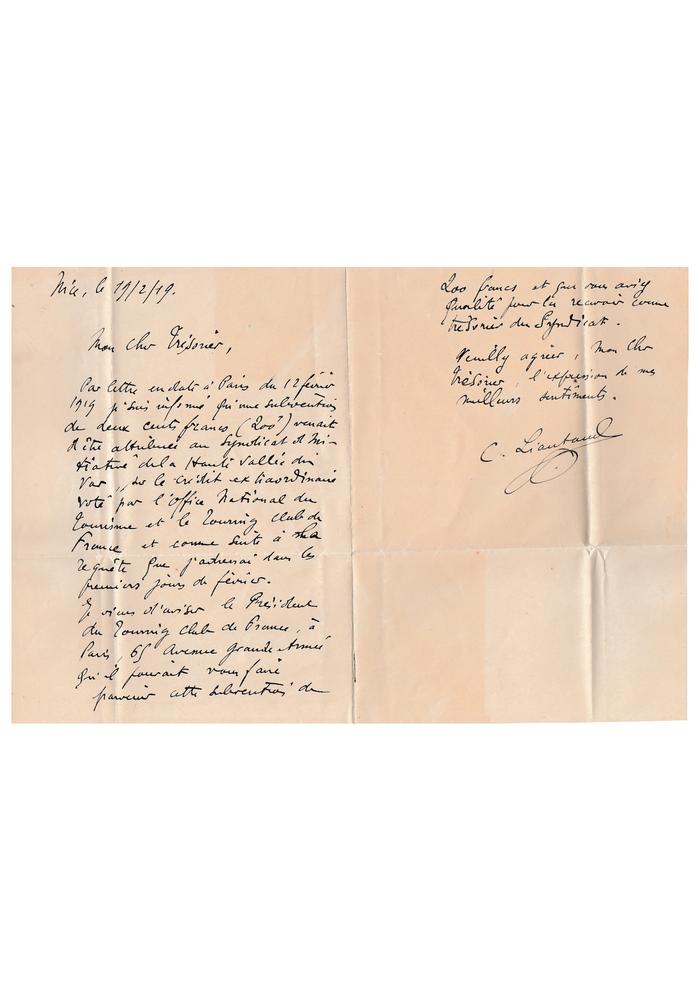 Nice, le 19/2/19.
Mon cher Trésorier,
Par lettre en date à Paris du 12 février
1919 je suis informé qu'une subvention
de deux cents francs (200f) venait
d'être attribuée au Syndicat d'Ini-
tiative de la Haute Vallée du
Var, sur le crédit extraordinaire
voté par l'Office National du
Tourisme et le Touring Club de
France et comme suite à ma
requête que j'adressai dans les
premiers jours de février.
Je viens d'aviser le Président
du Touring Club de France, à
Paris, 65 Avenue Grande Armée
qu'il pouvait vous faire
parvenir cette subvention de
200 francs et que vous aviez
qualité pour la recevoir comme
trésorier du Syndicat.
Veuillez agréer, mon cher
Trésorier, l'expression de mes
meilleurs sentiments.
C. Liautaud